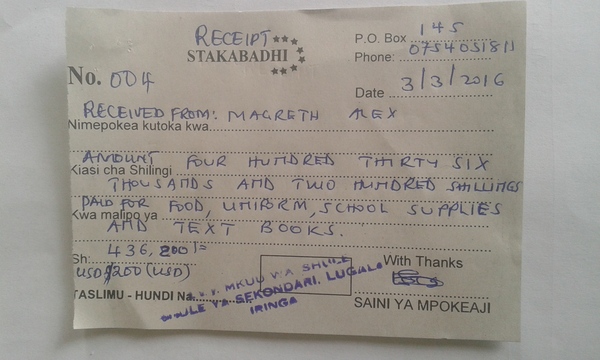 RECEIPT
STAKABADHI
P.O. Box 145
Phone: 0754051811
No. 004
Date 3/3/2016
RECEIVED FROM: MAGRETH ALEX
Nimepokea kutoka kwa
AMOUNT FOUR HUNDRED THIRTY SIX
Kiasi cha Shilingi
THOUSANDS AND TWO HUNDRED SHILLINGS
PAID FOR FOOD, UNIFORM, SCHOOL SUPPLIES
Kwa malipo ya
AND TEXT BOOKS.
Sh: 436,200/=
USD $200 (USD)
With Thanks
TASLIMU - HUNDI Na.
MKUU WA SHULE
SHULE YA SEKONDARI, LUGALO
IRINGA
SAINI YA MPOKEAJI